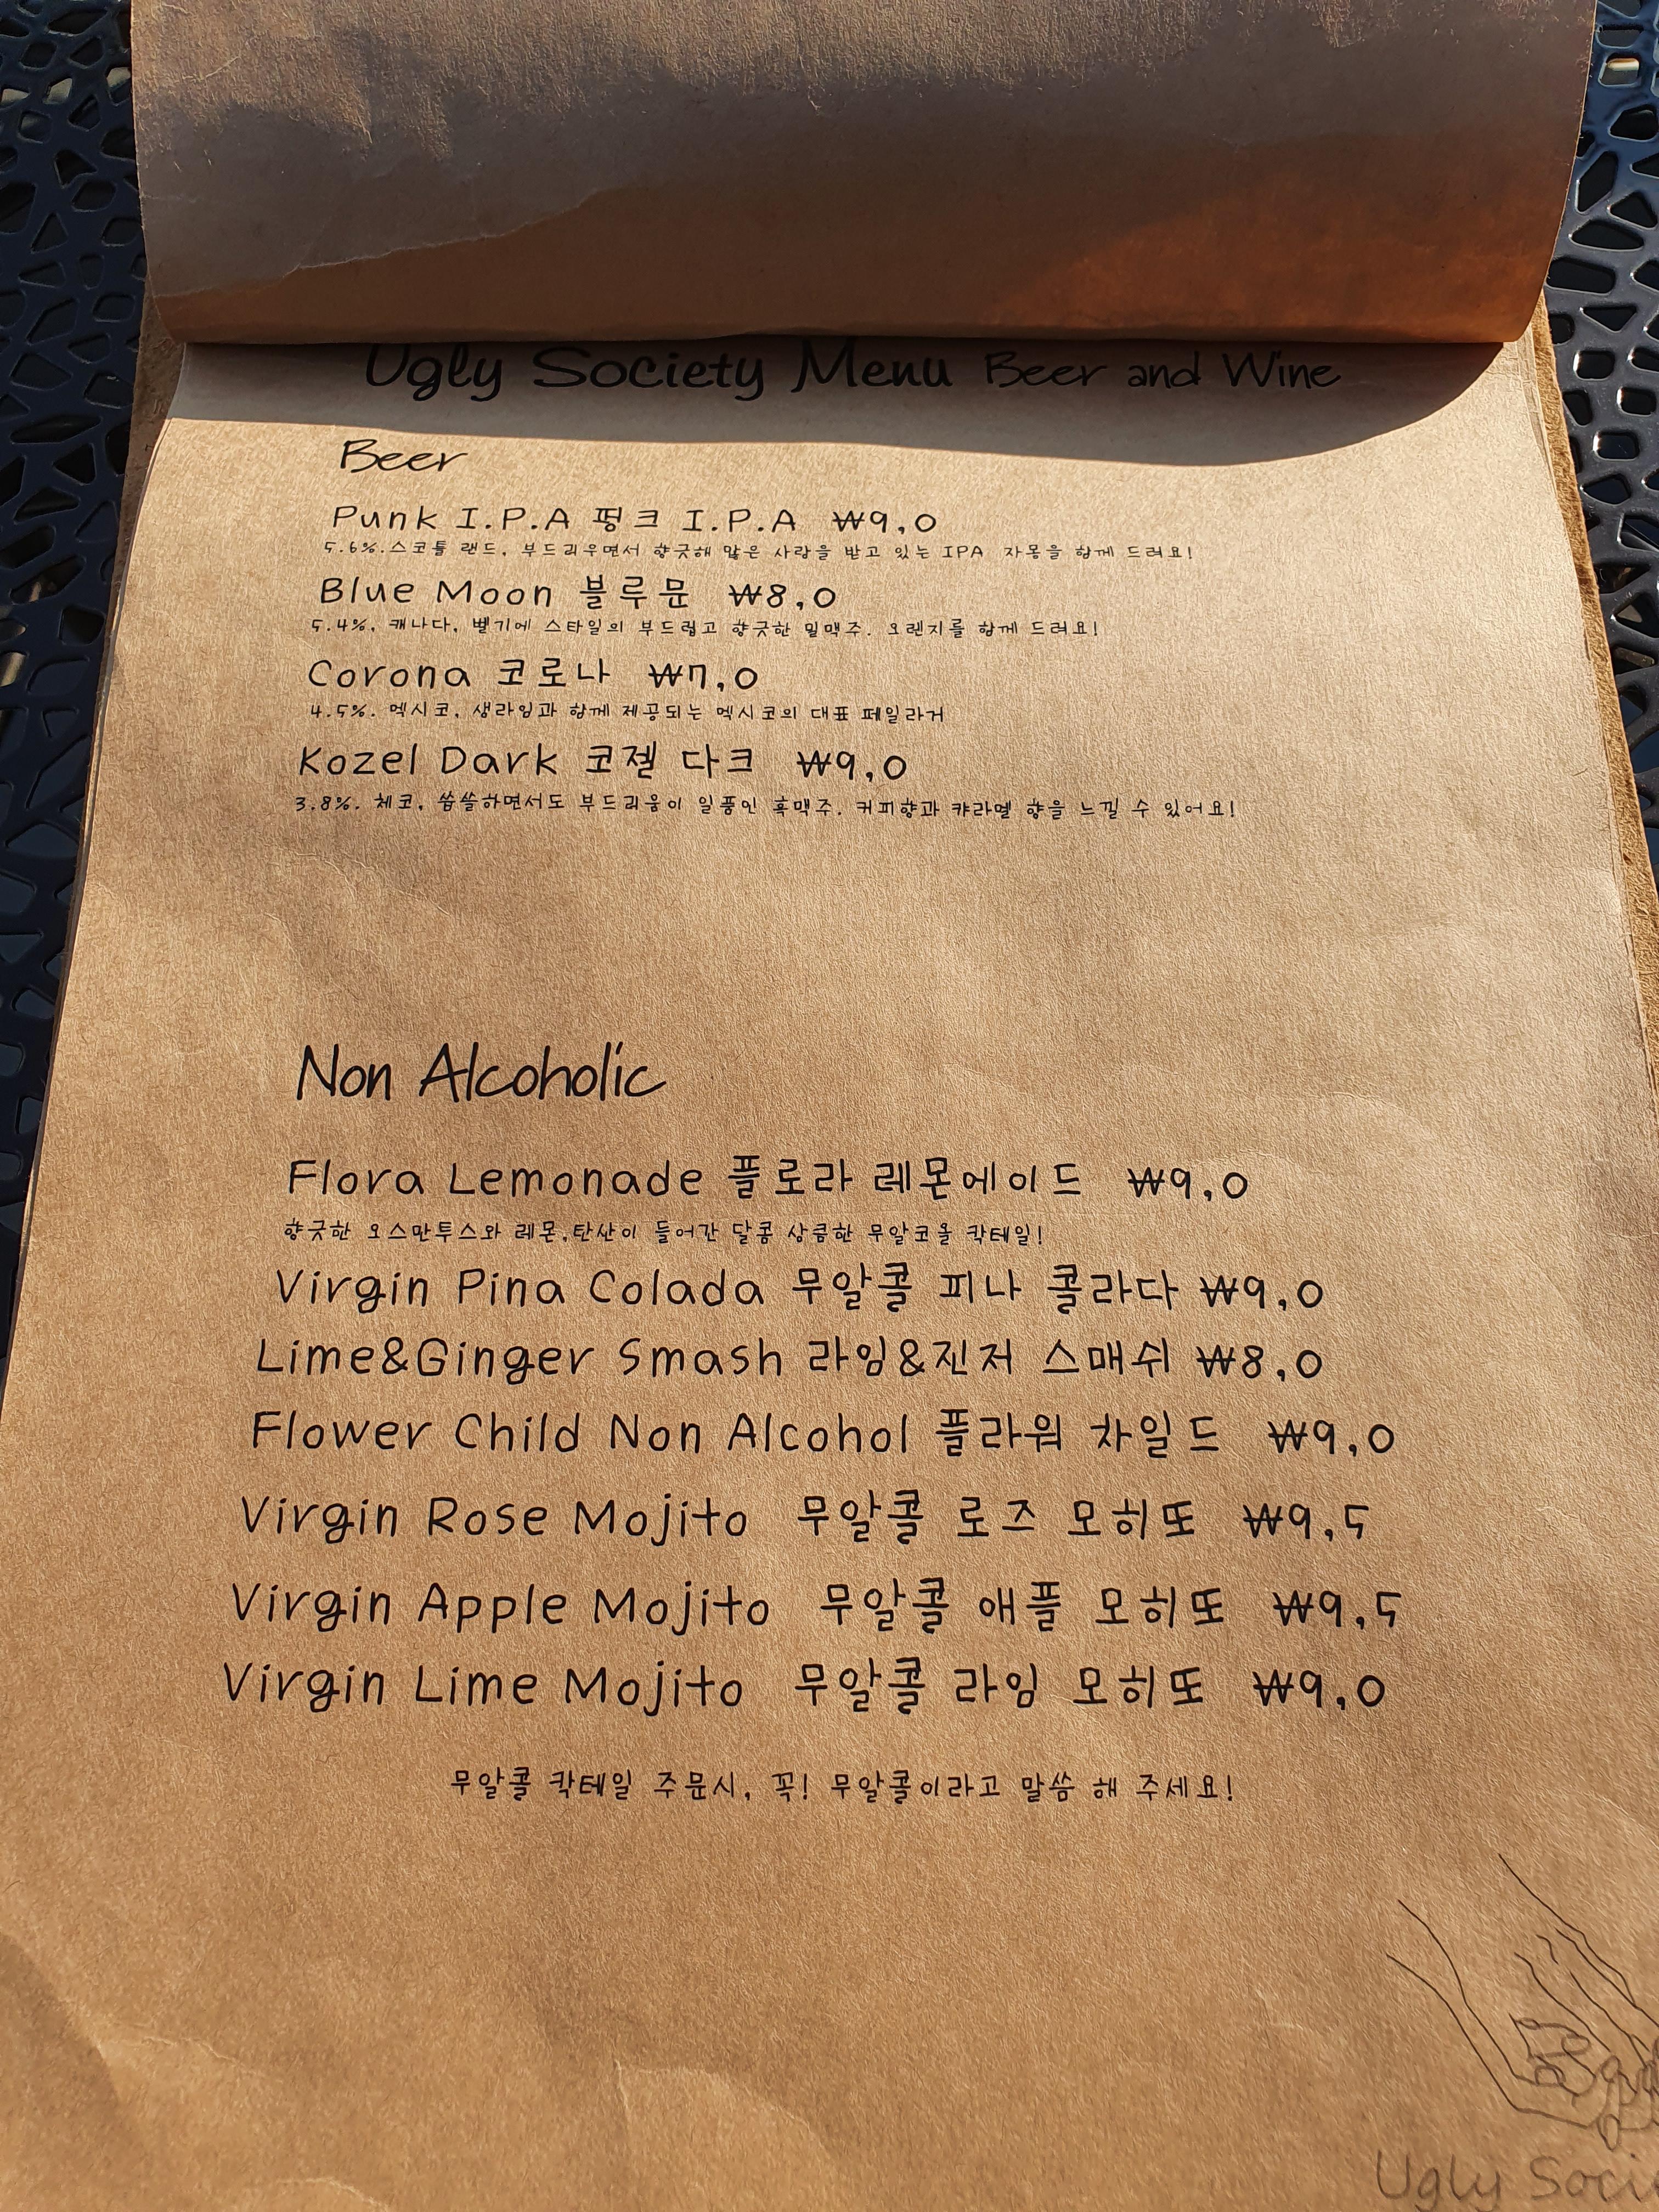 Ugly Society Menu Beer and Wine
Beer
Punk I.P.A 펑크 I.P.A ₩9,0
5.6%.스코틀 랜드, 부드러우면서 향긋해 많은 사랑을 받고 있는 IPA 자몽을 함께 드려요!
Blue Moon 블루문 ₩8,0
5.4%, 캐나다, 벨기에 스타일의 부드럽고 향긋한 밀맥주. 오렌지를 함께 드려요!
Corona 코로나 ₩7,0
4.5%. 멕시코, 생라임과 함께 제공되는 멕시코의 대표 페일라거
Kozel Dark 코젤 다크 ₩9,0
3.8%. 체코, 씁쓸하면서도 부드러움이 일품인 흑맥주. 커피향과 캬라멜 향을 느낄 수 있어요!
Non Alcoholic
Flora Lemonade 플로라 레몬에이드 ₩9,0
향긋한 오스만투스와 레몬,탄산이 들어간 달콤 상큼한 무알코올 칵테일!
Virgin Pina Colada 무알콜 피나 콜라다 ₩9,0
Lime&Ginger Smash 라임&진저 스매쉬 ₩8,0
Flower Child Non Alcohol 플라워 차일드 ₩9,0
Virgin Rose Mojito 무알콜 로즈 모히또 ₩9,5
Virgin Apple Mojito 무알콜 애플 모히또 ₩9,5
Virgin Lime Mojito 무알콜 라임 모히또 ₩9,0
무알콜 칵테일 주문시, 꼭! 무알콜이라고 말씀 해 주세요!
Ugly Soci